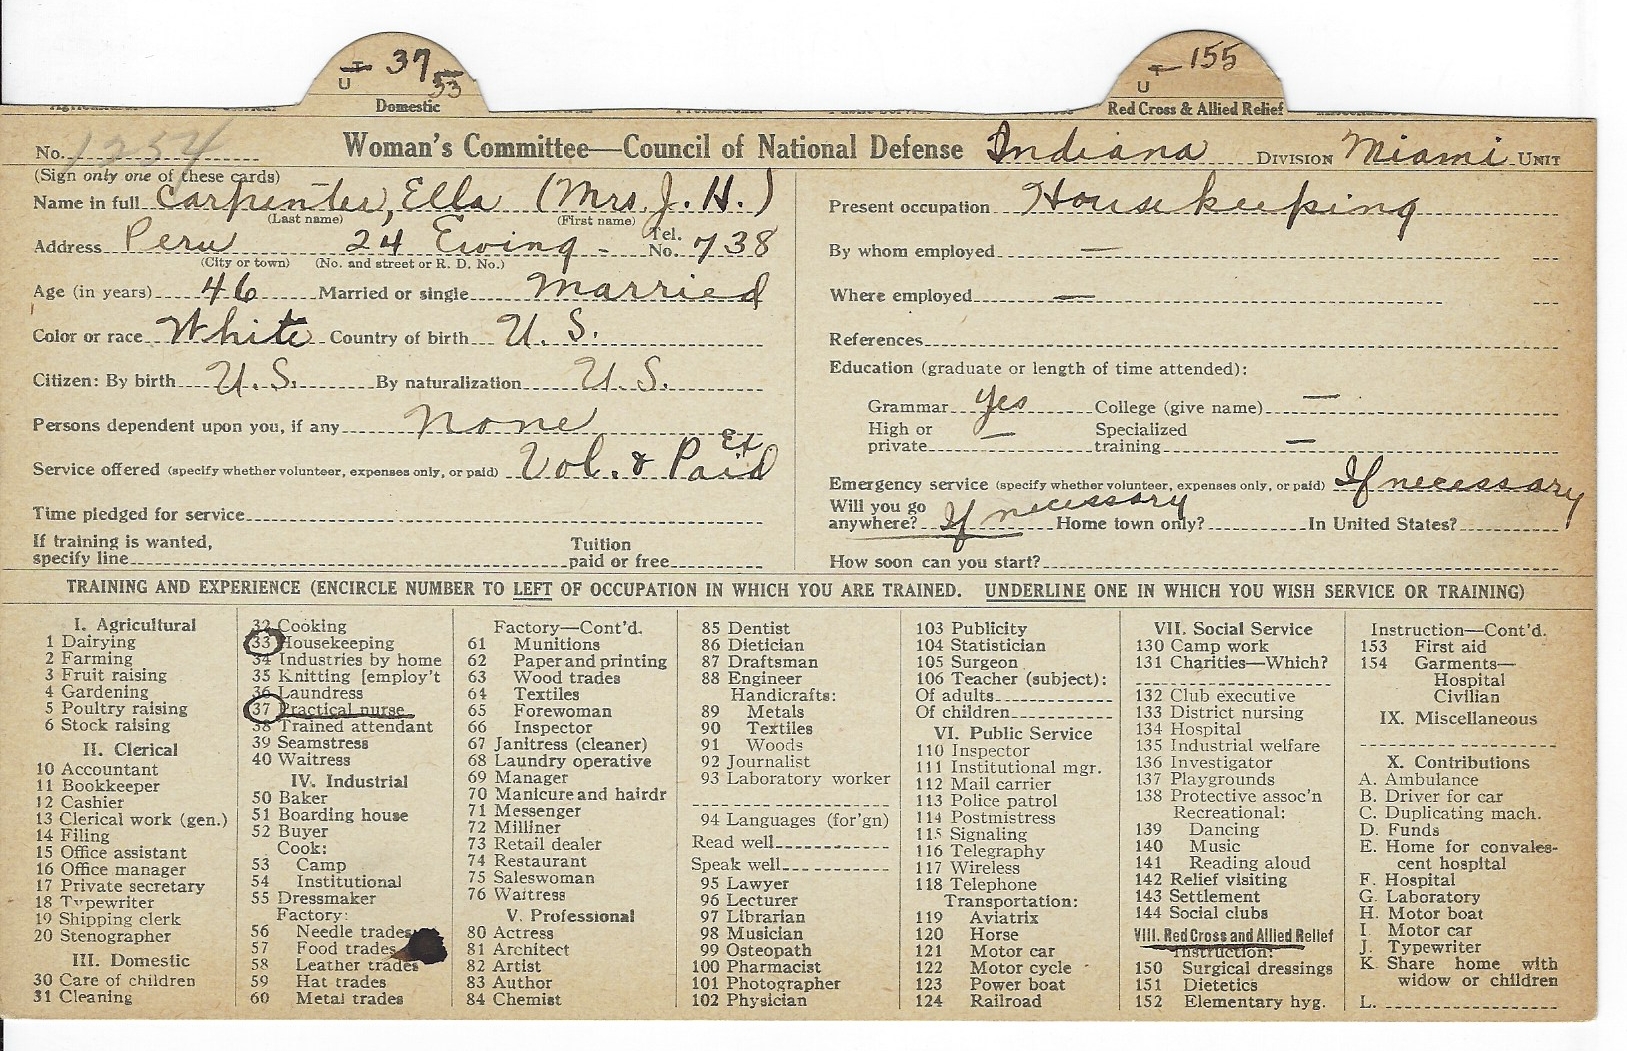 U T 37 53
U T 155
Domestic
Red Cross & Allied Relief
No. 1254
Woman's Committee—Council of National Defense Indiana DIVISION Miami UNIT
(Sign only one of these cards)
Name in full Carpenter, Ella (Mrs. J. H.)
(Last name) (First name)
Address Peru 24 Ewing - Tel. No. 738
(City or town) (No. and street or R. D. No.)
Age (in years) 46 Married or single Married
Color or race White Country of birth U. S.
Citizen: By birth U. S. By naturalization U. S.
Persons dependent upon you, if any None
Service offered (specify whether volunteer, expenses only, or paid) Vol. & Paid Ex
Time pledged for service
If training is wanted, specify line Tuition paid or free
Present occupation Housekeeping
By whom employed —
Where employed —
References
Education (graduate or length of time attended):
Grammar Yes College (give name) —
High or private — Specialized training —
Emergency service (specify whether volunteer, expenses only, or paid) If necessary
Will you go anywhere? If necessary Home town only? In United States?
How soon can you start?
TRAINING AND EXPERIENCE (ENCIRCLE NUMBER TO LEFT OF OCCUPATION IN WHICH YOU ARE TRAINED. UNDERLINE ONE IN WHICH YOU WISH SERVICE OR TRAINING)
I. Agricultural
1 Dairying
2 Farming
3 Fruit raising
4 Gardening
5 Poultry raising
6 Stock raising
II. Clerical
10 Accountant
11 Bookkeeper
12 Cashier
13 Clerical work (gen.)
14 Filing
15 Office assistant
16 Office manager
17 Private secretary
18 Typewriter
19 Shipping clerk
20 Stenographer
III. Domestic
30 Care of children
31 Cleaning
32 Cooking
33 Housekeeping
34 Industries by home
35 Knitting [employ't
36 Laundress
37 Practical nurse
38 Trained attendant
39 Seamstress
40 Waitress
IV. Industrial
50 Baker
51 Boarding house
52 Buyer
Cook:
53 Camp
54 Institutional
55 Dressmaker
Factory:
56 Needle trades
57 Food trades
58 Leather trades
59 Hat trades
60 Metal trades
Factory—Cont'd.
61 Munitions
62 Paper and printing
63 Wood trades
64 Textiles
65 Forewoman
66 Inspector
67 Janitress (cleaner)
68 Laundry operative
69 Manager
70 Manicure and hairdr
71 Messenger
72 Milliner
73 Retail dealer
74 Restaurant
75 Saleswoman
76 Waitress
V. Professional
80 Actress
81 Architect
82 Artist
83 Author
84 Chemist
85 Dentist
86 Dietician
87 Draftsman
88 Engineer
Handicrafts:
89 Metals
90 Textiles
91 Woods
92 Journalist
93 Laboratory worker
94 Languages (for'gn)
Read well
Speak well
95 Lawyer
96 Lecturer
97 Librarian
98 Musician
99 Osteopath
100 Pharmacist
101 Photographer
102 Physician
103 Publicity
104 Statistician
105 Surgeon
106 Teacher (subject):
Of adults
Of children
VI. Public Service
110 Inspector
111 Institutional mgr.
112 Mail carrier
113 Police patrol
114 Postmistress
115 Signaling
116 Telegraphy
117 Wireless
118 Telephone
Transportation:
119 Aviatrix
120 Horse
121 Motor car
122 Motor cycle
123 Power boat
124 Railroad
VII. Social Service
130 Camp work
131 Charities—Which?
132 Club executive
133 District nursing
134 Hospital
135 Industrial welfare
136 Investigator
137 Playgrounds
138 Protective assoc'n
Recreational:
139 Dancing
140 Music
141 Reading aloud
142 Relief visiting
143 Settlement
144 Social clubs
VIII. Red Cross and Allied Relief
Instruction:
150 Surgical dressings
151 Dietetics
152 Elementary hyg.
Instruction—Cont'd.
153 First aid
154 Garments—
Hospital
Civilian
IX. Miscellaneous
X. Contributions
A. Ambulance
B. Driver for car
C. Duplicating mach.
D. Funds
E. Home for convales-
cent hospital
F. Hospital
G. Laboratory
H. Motor boat
I. Motor car
J. Typewriter
K. Share home with
widow or children
L.